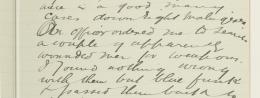 are in a good many
cases downright malingerers
An officer ordered me to search
a couple of apparently
wounded men for weapons.
I found nothing wrong
with them but blue funk
& passed them back to